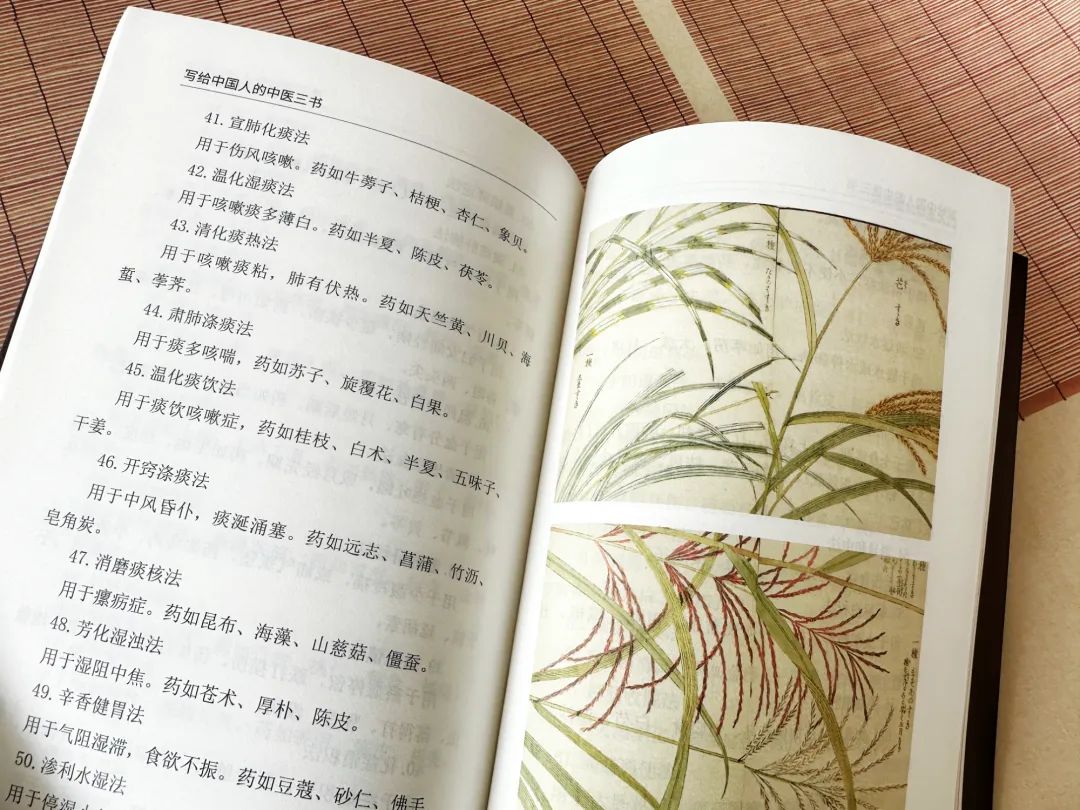 写给中国人的中医三书
41. 宣肺化痰法
用于伤风咳嗽。药如牛蒡子、桔梗、杏仁、象贝。
42. 温化湿痰法
用于咳嗽痰多薄白。药如半夏、陈皮、茯苓。
43. 清化痰热法
用于咳嗽痰粘，肺有伏热。药如天竺黄、川贝、海
蜇、荸荠。
44. 肃肺涤痰法
用于痰多咳喘，药如苏子、旋覆花、白果。
45. 温化痰饮法
用于痰饮咳嗽症，药如桂枝、白术、半夏、五味子、
干姜。
46. 开窍涤痰法
用于中风昏仆，痰涎涌塞。药如远志、菖蒲、竹沥、
皂角炭。
47. 消磨痰核法
用于瘰疬症。药如昆布、海藻、山慈菇、僵蚕。
48. 芳化湿浊法
用于湿阻中焦。药如苍术、厚朴、陈皮。
49. 辛香健胃法
用于气阻湿滞，食欲不振。药如豆蔻、砂仁、佛手
50. 渗利水湿法
用于停湿
一種
芒
すすき
一種
一種